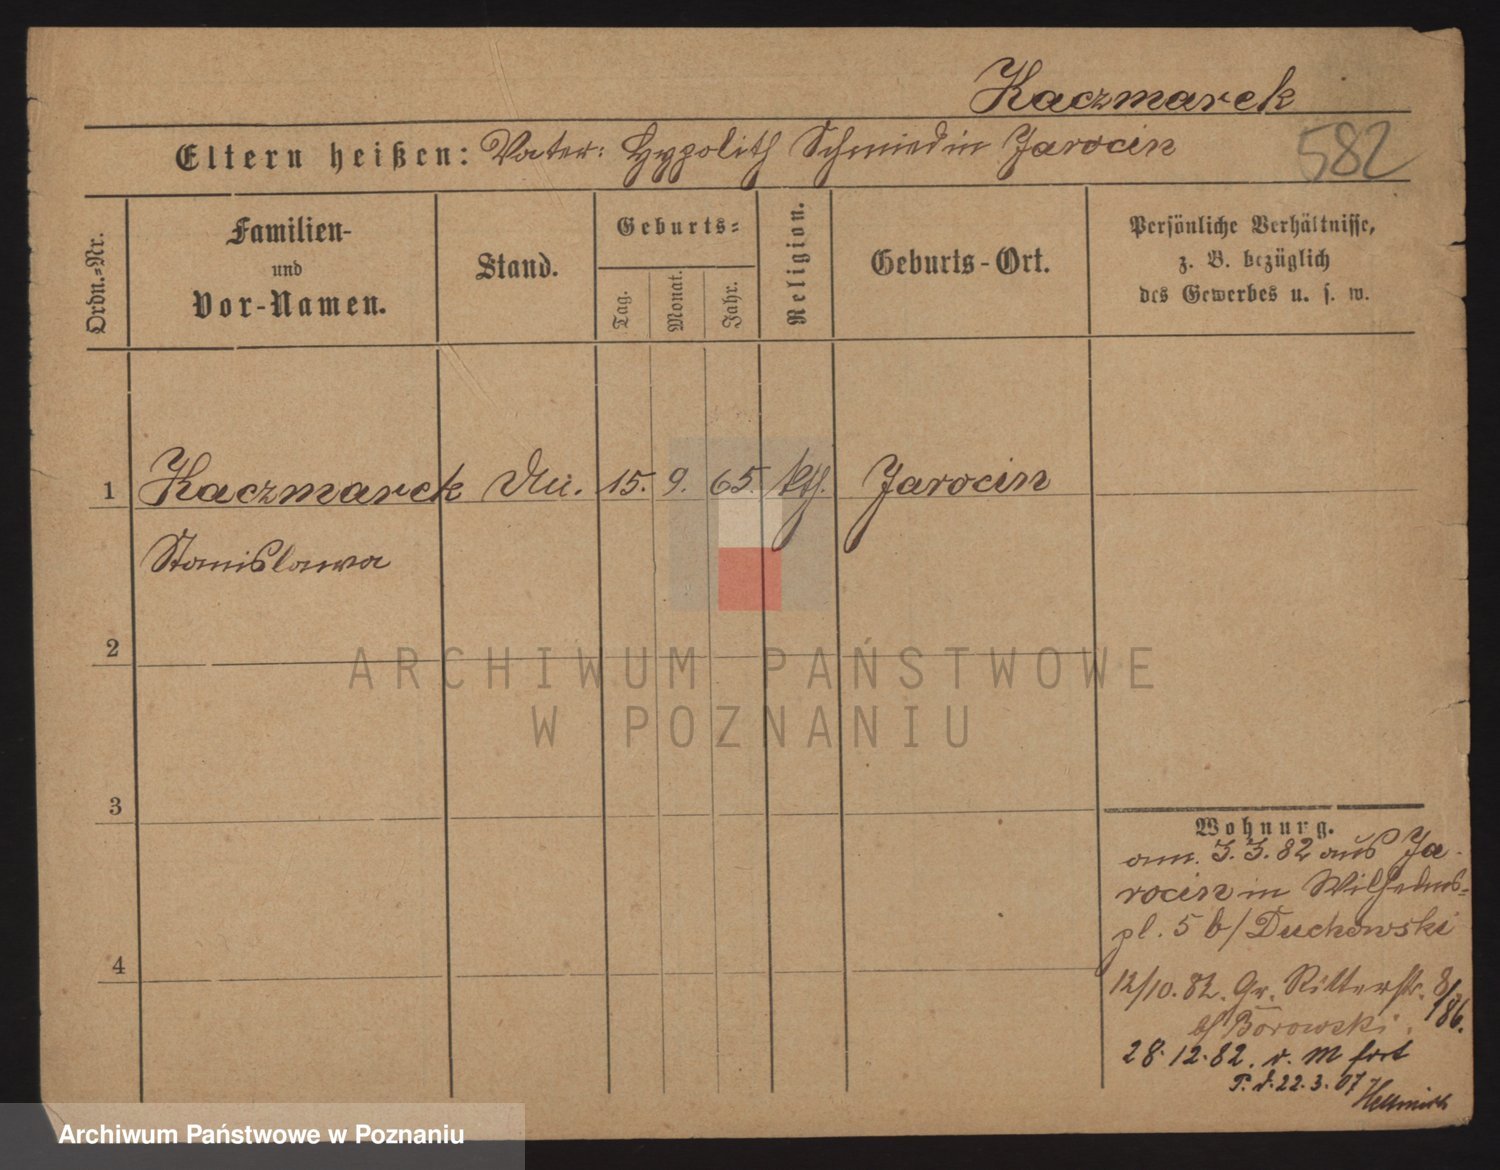 Kaczmarek
582
Eltern heißen: Vater: Hypolith Schmied in Jarocin
Ordn.=Nr.
Familien-
und
Vor-Namen.
Stand.
Geburts=
Tag.
Monat.
Jahr.
Religion.
Geburts-Ort.
Persönliche Verhältnisse,
z. B. bezüglich
des Gewerbes u. s. w.
1 Kaczmarek 15. 9. 65. kth. Jarocin
Stanislawa
2
3
4
Wohnung.
am 3.3.82 aus Ja-
rocin in Wilhelms-
pl. 5 b/ Duchowski
12/10. 82. Gr. Ritterstr. 8/
b/ Borowski. 186.
28.12.82. v. M fort
P. d. 22.3.07
ARCHIWUM PAŃSTWOWE
W POZNANIU
Archiwum Państwowe w Poznaniu